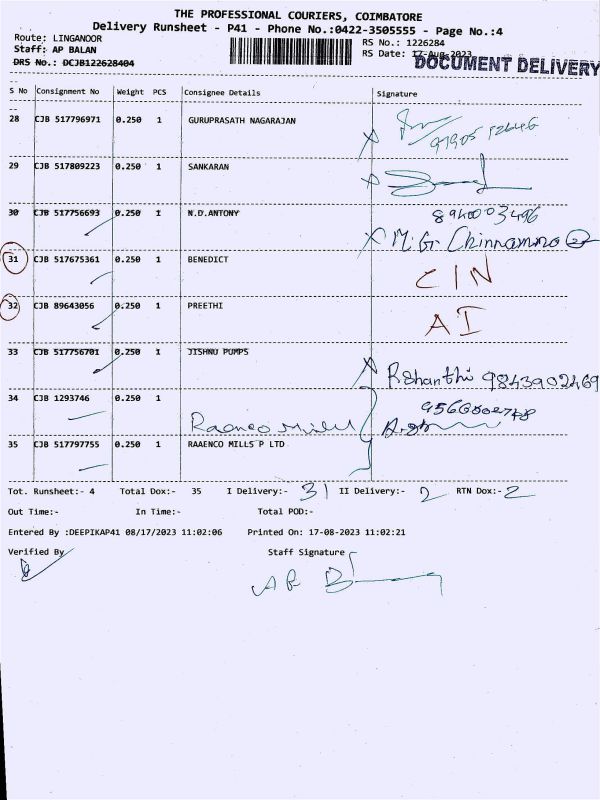 THE PROFESSIONAL COURIERS, COIMBATORE
Delivery Runsheet - P41 - Phone No.:0422-3505555 - Page No.:4
Route: LINGANOOR
RS No.: 1226284
Staff: AP BALAN
RS Date: 17-Aug-2023
DRS No.: DCJB122628404
DOCUMENT DELIVERY
S No Consignment No Weight PCS Consignee Details Signature
28 CJB 517796971 0.250 1 GURUPRASATH NAGARAJAN
29 CJB 517809223 0.250 1 SANKARAN
30 CJB 517756693 0.250 1 N.D.ANTONY
M. Gr Chinnamma
31 CJB 517675361 0.250 1 BENEDICT C/N
32 CJB 89643056 0.250 1 PREETHI AI
33 CJB 517756701 0.250 1 JISHNU PUMPS
R Shanthi 9843902469
34 CJB 1293746 0.250 1
Raenco Mill
35 CJB 517797755 0.250 1 RAAENCO MILLS P LTD
Tot. Runsheet:- 4 Total Dox:- 35 I Delivery:- 31 II Delivery:- 2 RTN Dox:- 2
Out Time:- In Time:- Total POD:-
Entered By :DEEPIKAP41 08/17/2023 11:02:06 Printed On: 17-08-2023 11:02:21
Verified By Staff Signature